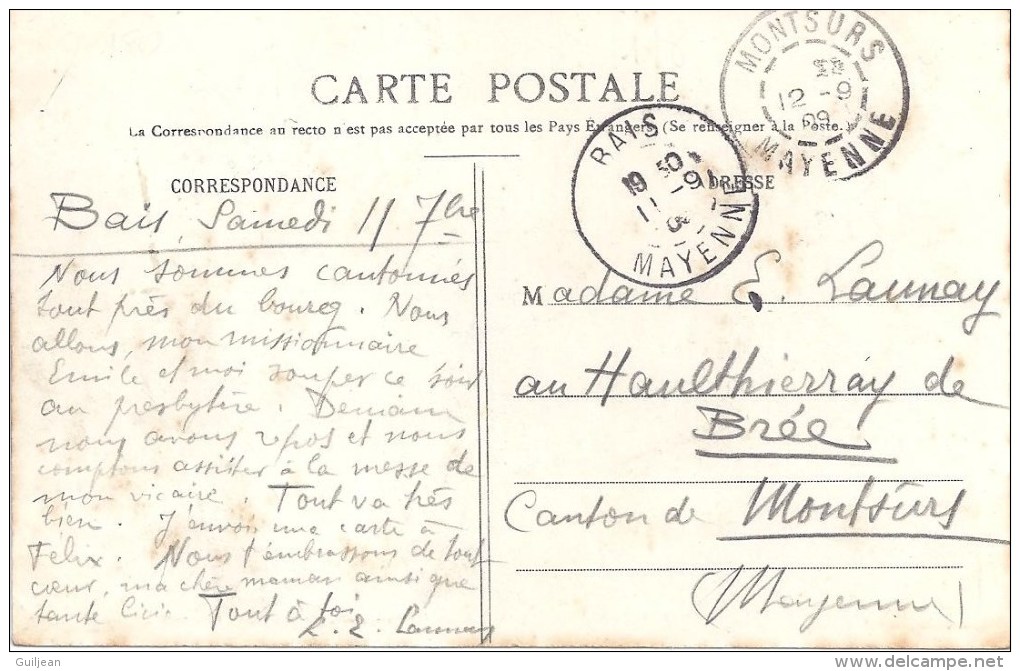 CARTE POSTALE
La Correspondance au recto n'est pas acceptée par tous les Pays Étrangers. (Se renseigner à la Poste.)
MONTSURS
12 -9
09
MAYENNE
BAIS
MAYENNE
CORRESPONDANCE
ADRESSE
Bais, Samedi 11 7bre
Nous sommes cantonnés
tout près du bourg. Nous
allons, mon missionnaire
Emile et moi souper ce soir
au presbytère. Demain
nous avons repos et nous
comptons assister à la messe de
mon vicaire. Tout va très
bien. J'envoie une carte à
Félix. Nous t'embrassons de tout
cœur, ma chère maman ainsi que
tante. Tout à toi
E. Launay
Madame E. Launay
au Haulthierray de
Brée
Canton de Montsûrs
(Mayenne)
Guiljean
www.delcampe.net